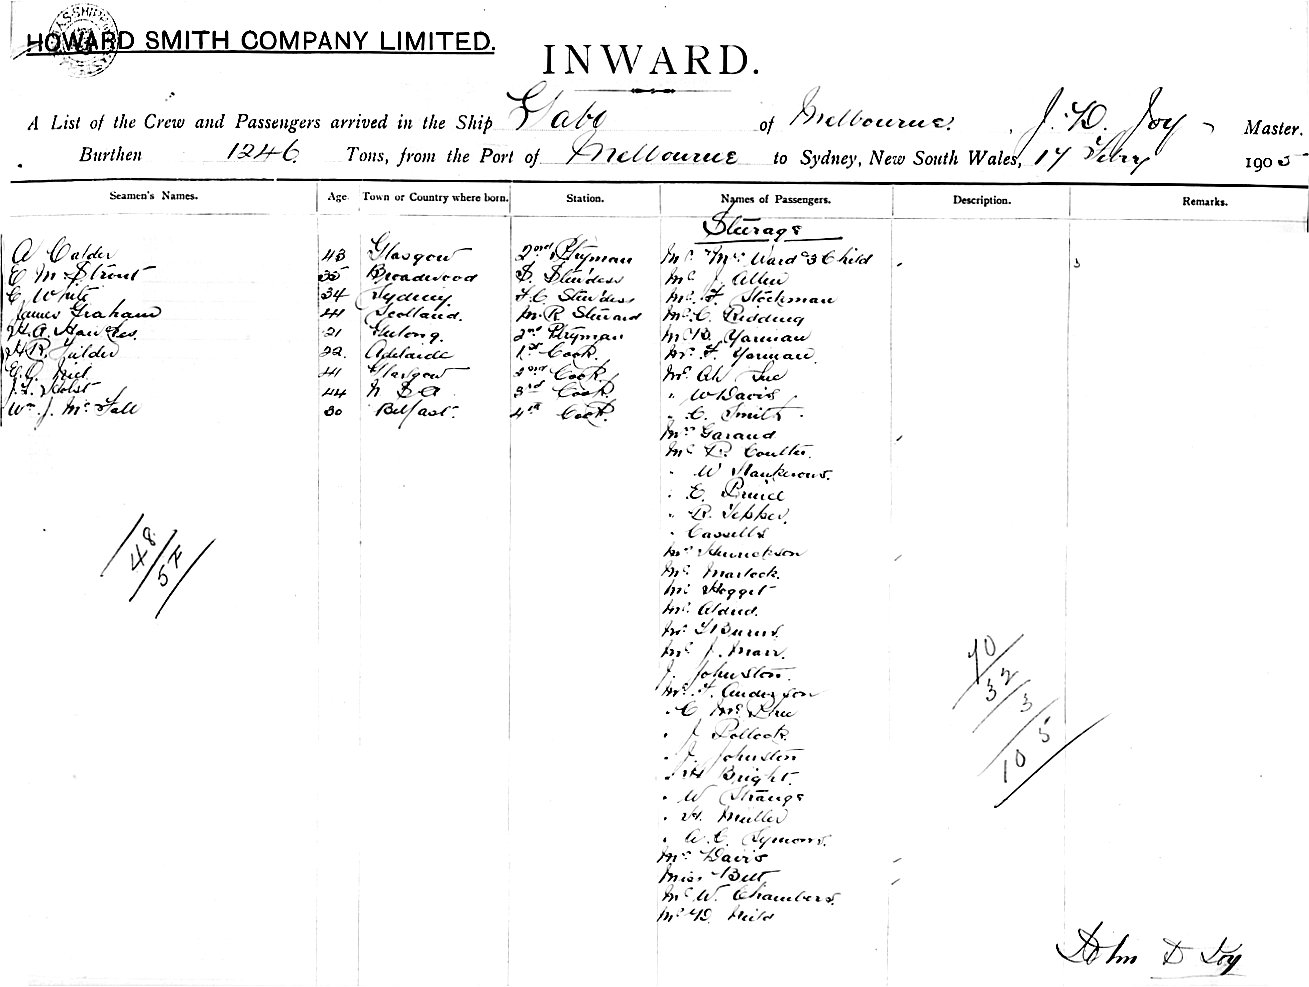 HOWARD SMITH COMPANY LIMITED.
INWARD.
A List of the Crew and Passengers arrived in the Ship Gabo of Melbourne. J. D. Joy Master.
Burthen 1246 Tons, from the Port of Melbourne to Sydney, New South Wales, 17 Febry 1905
Seamen's Names. Age Town or Country where born. Station. Names of Passengers. Description. Remarks.
Steerage
A Calder 43 Glasgow 2nd Ptryman Mr & Mrs Ward & 3 Child
E M Strout 35 Broadwood S. Stew'dess Mr J Allen
C White 34 Sydney F.C. Stew'dess Mr F. Stockman
James Graham 41 Scotland. M.R Steward Mr C. Ridding
H.A. Hawkes. 21 Geelong. 2nd Ptryman Mr D. Yarman
H.R. Fielder 22. Adelaide 1st Cook. Mr F. Yarman.
41 Glasgow 2nd Cook Mr Ah
J. F. Holst 44 3rd Cook. " W Davis
Wm J. McFall 30 Belfast. 4th Cook. " C. Smith
Mrs Garaud
Mr R. Coulter.
" W
" E.
" R. Tepper.
" Cassells
Mrs
Mr Marlock.
Mr Hogget
Mr.
Mr G Burns.
Mr J. Marr.
J. Johnston.
Mr. F. Anderson
" C. McPhee
" J Pollock.
" J. Johnston
" H Bright.
" W Strange
" H. Muller
" A. C. Symons.
Mrs Davis
Miss Bett
Mr W. Chambers.
Mr D.
48
57
70
32
3
105
John D Joy